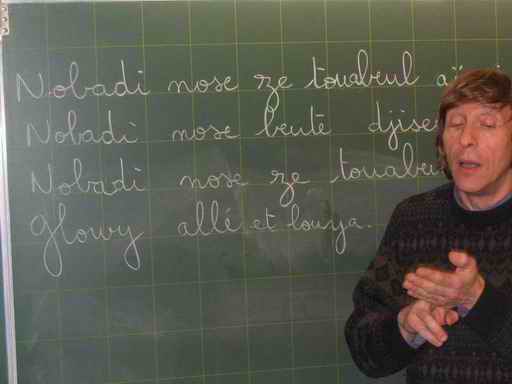 Nobadi nose ze touabeul aï
Nobadi nose beutē djise
Nobadi nose ze touabeu
Glowy allé et louya.